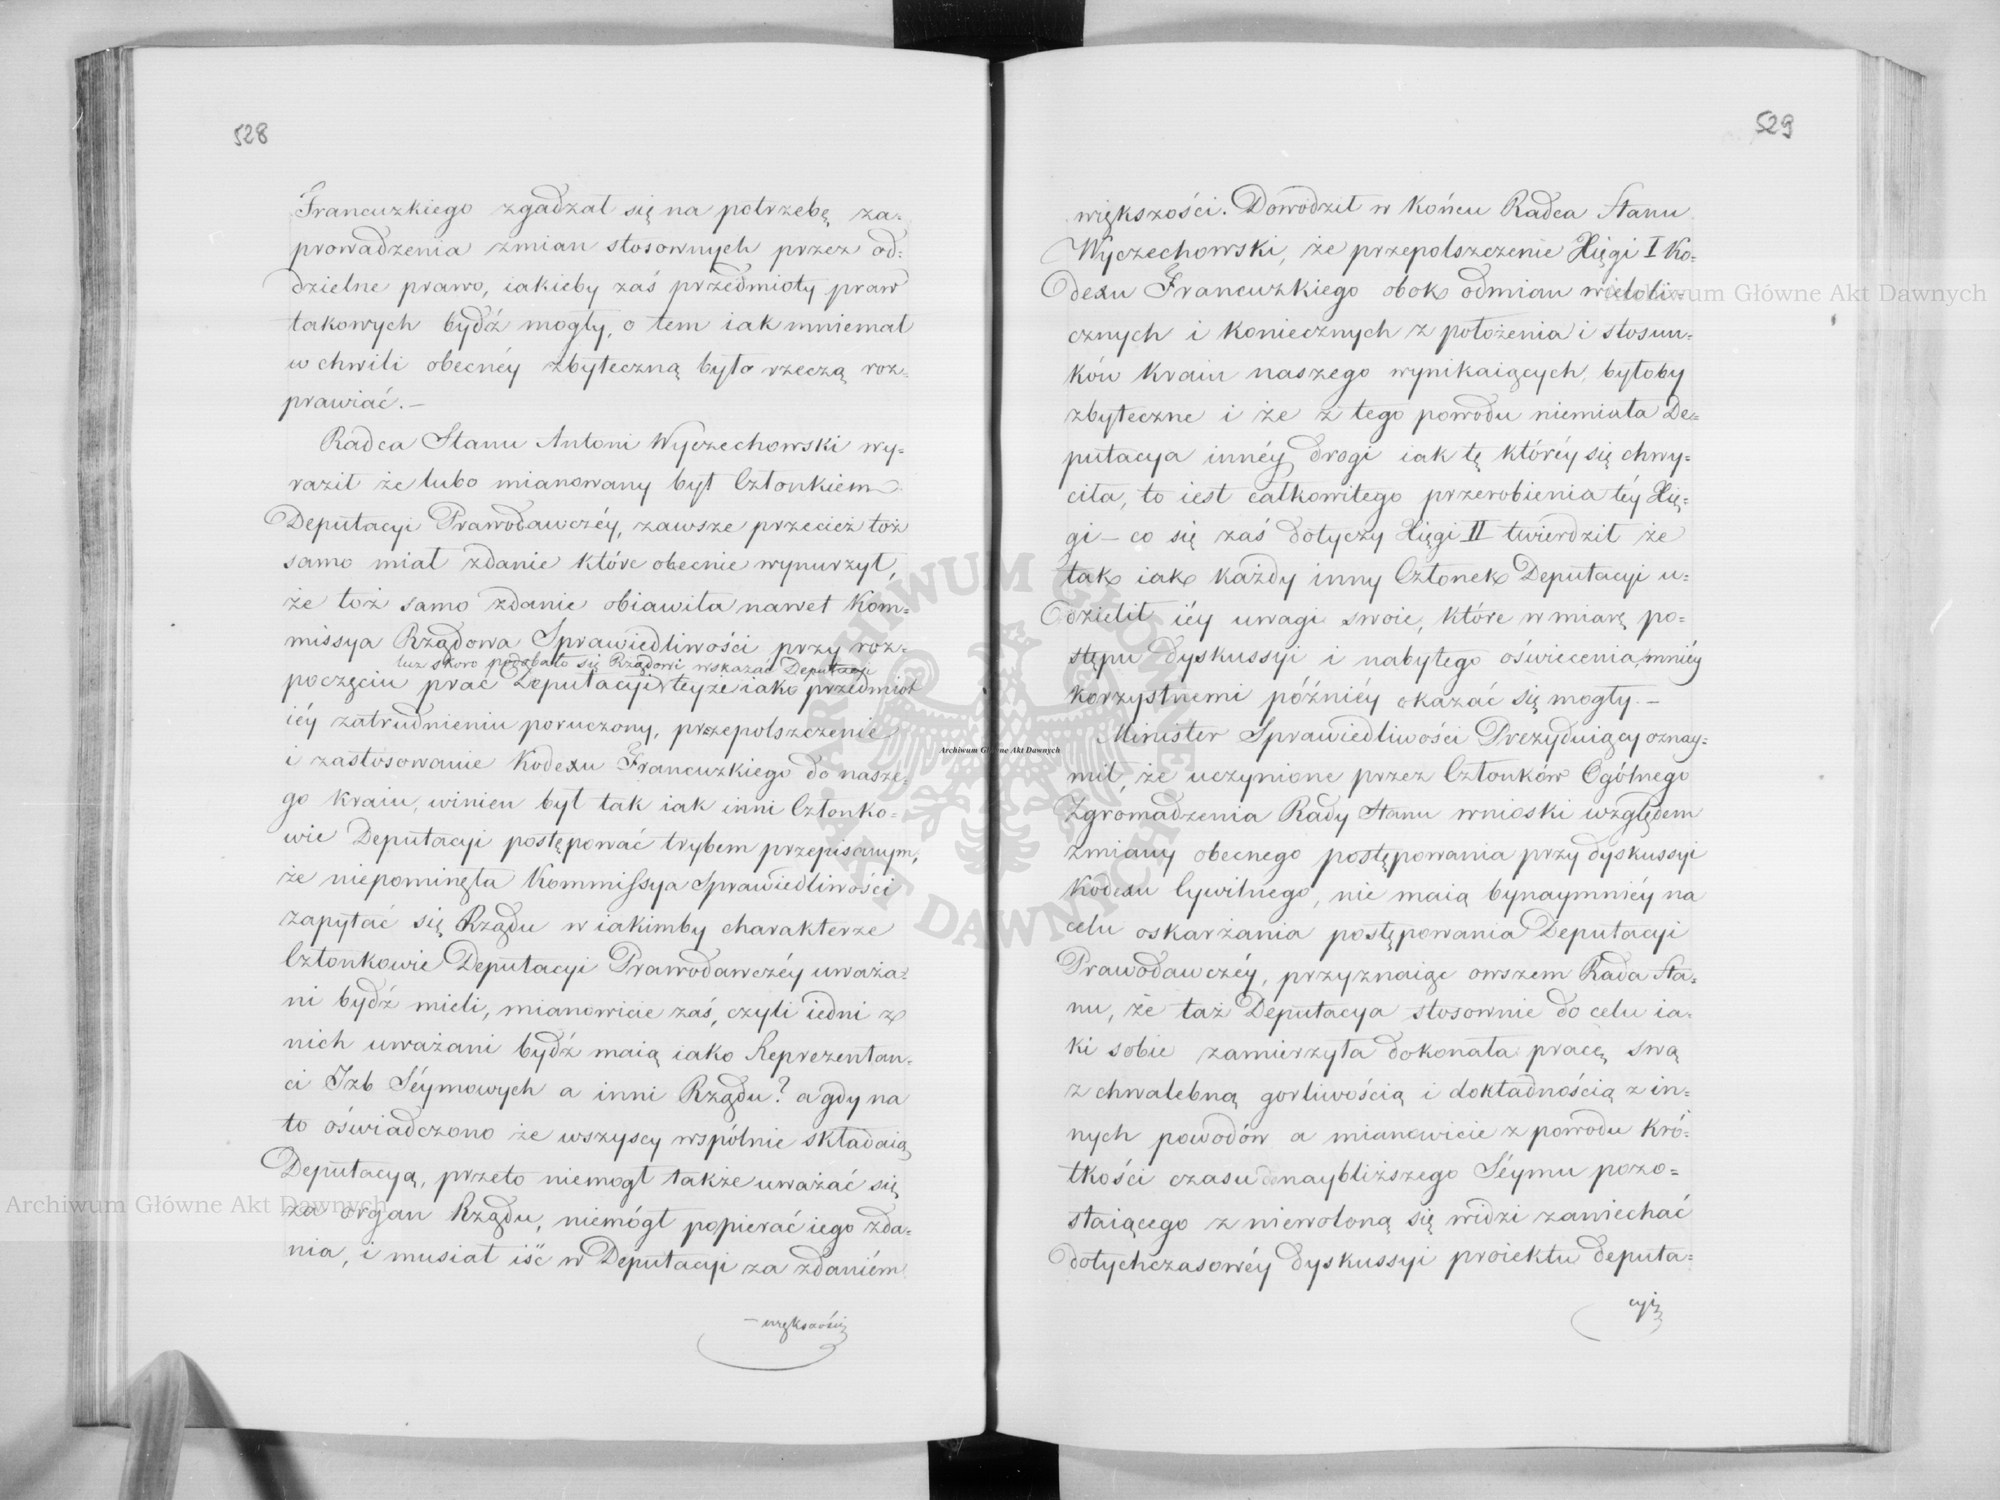 528
Francuzkiego zgadzał się na potrzebę za-
prowadzenia zmian stosownych przez od-
dzielne prawo, iakieby zaś przedmioty praw
takowych bydź mogły, o tem iak mniemał
w chwili obecnéy zbyteczną było rzeczą roz-
prawiać.—
Radca Stanu Antoni Wyczechowski wy-
raził że lubo mianowany był Członkiem
Deputacyi Prawodawczéy, zawsze przecież toż
samo miał zdanie które obecnie wynurzył,
że toż samo zdanie obiawiła nawet Kom-
missya Rządowa Sprawiedliwości przy roz-
lecz skoro podobało się Rządowi wskazać Deputacyi
poczęciu prac Deputacyi teyże iako przedmiot
iéy zatrudnieniu poruczony, przepolszczenie
i zastosowanie Kodexu Francuzkiego do nasze-
go kraiu, winien był tak iak inni Członko-
wie Deputacyi postępować trybem przepisanym,
że niepominęła Kommissya Sprawiedliwości
zapytać się Rządu w iakimby charakterze
Członkowie Deputacyi Prawodawczéy uważa-
ni bydź mieli, mianowicie zaś, czyli iedni z
nich uważani bydź maią iako Reprezentan-
ci Izb Séymowych a inni Rządu? a gdy na
to oświadczono że wszyscy wspólnie składaią
Deputacyą, przeto niemogł także uważać się
za organ Rządu, niemógł popierać iego zda-
nia, i musiał iść w Deputacyi za zdaniém
— większości
529
większości. Dowodził w końcu Radca Stanu
Wyczechowski, że przepolszczenie Xięgi I Ko-
dexu Francuzkiego obok odmian wieloli-
cznych i koniecznych z położenia i stosun-
ków kraiu naszego wynikaiących, byłoby
zbyteczne i że z tego powodu niemiała De-
putacya innéy drogi iak tę któréy się chwy-
ciła, to iest całkowitego przerobienia téy Xię-
gi — co się zaś dotyczy Xięgi II twierdził że
tak iak każdy inny Członek Deputacyi u-
dzielił iéy uwagi swoie, które w miarę po-
stępu dyskussyi i nabytego oświecenia, mniéy
korzystnemi późniéy okazać się mogły.—
Minister Sprawiedliwości Prezyduiący oznay-
mił, że uczynione przez Członków Ogólnego
Zgromadzenia Rady Stanu wnioski względem
zmiany obecnego postępowania przy dyskussyi
Kodexu Cywilnego, nie maią bynaymniéy na
celu oskarżania postępowania Deputacyi
Prawodawczéy, przyznaiąc owszem Rada Sta-
nu, że taż Deputacya stosownie do celu ia-
ki sobie zamierzyła dokonała pracę swą
z chwalebną gorliwością i dokładnością z in-
nych powodów a mianowicie z powodu kró-
tkości czasu do naybliższego Séymu pozo-
staiącego z niewoloną się widzi zaniechać
dotychczasowéy dyskussyi proiektu deputa-
cyi
Archiwum Główne Akt Dawnych
Archiwum Główne Akt Dawnych
Archiwum Główne Akt Dawnych
ARCHIWUM GŁÓWNE AKT DAWNYCH